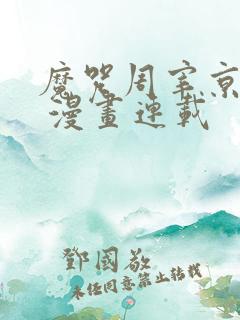 魔咒周宰京
漫畫連載
鄧國敬
未任同意禁止转载